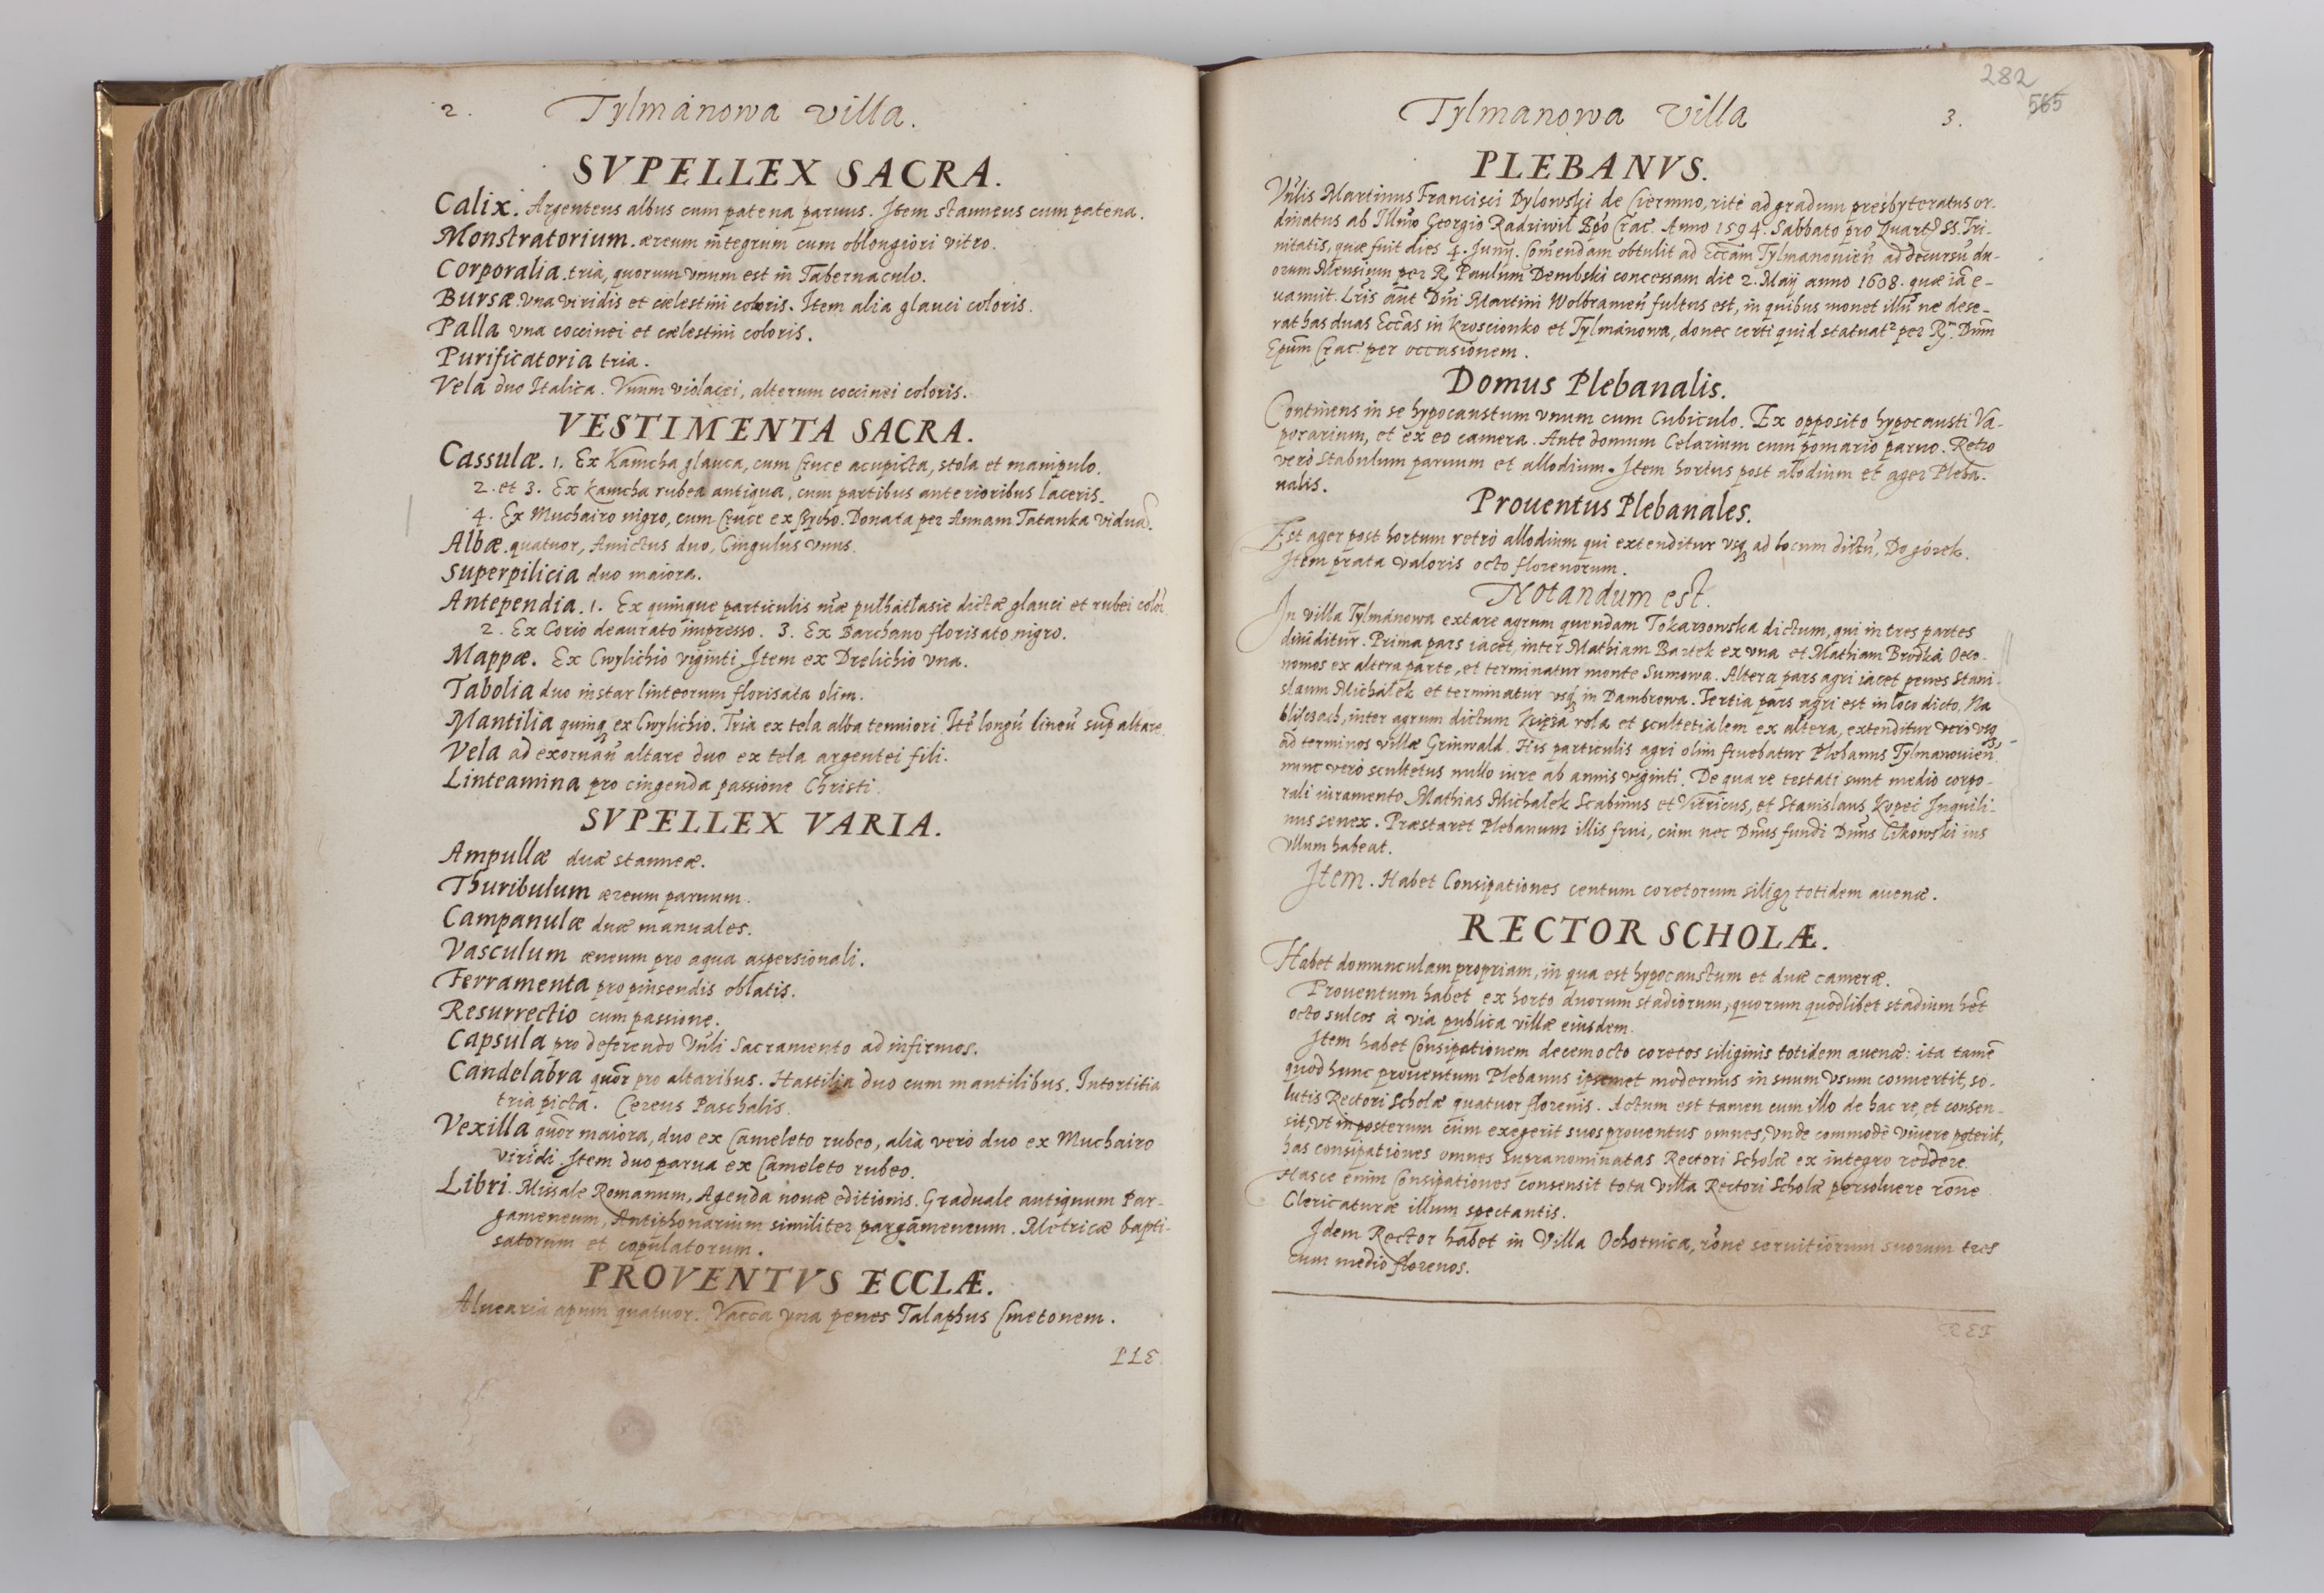 2. Tylmánowa villa.
SVPELLEX SACRA.
Calix. Argenteus albus cum patena paruus. Item stanneus cum patena.
Monstratorium. æreum integrum cum oblongiori vitro.
Corporalia. tria, quorum vnum est in Tabernaculo.
Bursæ. vna viridis et cœlestini coloris. Item alia glauci coloris.
Palla vna coccinei et cœlestini coloris.
Purificatoria tria.
Vela duo Italica. Vnum violacei, alterum coccinei coloris.
VESTIMENTA SACRA.
Cassulæ. 1. Ex Kamcha glauca, cum Cruce acupicta, stola et manipulo.
2. et 3. Ex Kamcha rubea antiqua, cum partibus anterioribus laceris.
4. Ex Muchairo nigro, cum Cruce ex. Donata per Annam Tatanka viduã.
Albæ. quatuor, Amictus duo, Cingulus vnus.
Superpilicia duo maiora.
Antependia. 1. Ex quinque particulis dictæ glauci et rubei
2. Ex Corio deaurato impresso. 3. Ex Barchano florisato nigro.
Mappæ. Ex Cwylichio viginti Item ex Drelichio vna.
Tabolia duo instar linteorum florisata olim.
Mantilia quinq ex Cwylichio. Tria ex tela alba tenuiori Itẽ longũ lineũ sup altare.
Vela ad exornañ altare duo ex tela argentei fili.
Linteamina pro cingenda passione Christi.
SVPELLEX VARIA.
Ampullæ duæ stanneæ.
Thuribulum æreum paruum.
Campanulæ duæ manuales.
Vasculum æneum pro aqua aspersionali.
Ferramenta pro pinsendis oblatis.
Resurrectio cum passione.
Capsula pro deferendo Vnli Sacramento ad infirmos.
Candelabra quõr pro altaribus. Hastilia duo cum mantilibus. Intortitia
tria picta. Cereus Paschalis.
Vexilla quõr maiora, duo ex Cameleto rubeo, alia verò duo ex Muchairo
viridi. Item duo parua ex Cameleto rubeo.
Libri. Missale Romanum, Agenda nouæ editionis. Graduale antiquum Par-
gameneum, Antiphonarium similiter pargameneum. Metricæ bapti-
satorum et copulatorum.
PROVENTVS ECCLÆ.
Aluearia apum quatuor. Vacca vna penes Talaphus Cmetonem.
PLE
282
565
Tylmanowa Villa 3.
PLEBANVS.
Vnlis Martinus Francisci Dylowski de Ciermno, ritè ad gradum presbyteratus or-
dinatus ab Illmo Georgio Radziwil Epo Crac. Anno 1594. Sabbato pro Quart SS. Tri-
nitatis, quæ fuit dies 4. Junij. Comendam obtulit ad Eccam Tylmanouien ad decursũ du-
orum Mensium per R. Paulum Dembski concessam die 2. Maij anno 1608. quæ iã e-
uanuit. Lris aũt Dni Martini Wolbramen fultus est, in quibus monet illũ ne dese-
rat has duas Eccas in Kroscionko et Tylmánowa, donec certi quid statuat per R. Dnm
Epũm Crac. per occasionem.
Domus Plebanalis.
Continens in se hypocaustum vnum cum Cubiculo. Ex opposito hypocausti Va-
porarium, et ex eo camera. Ante domum Celarium cum pomario paruo. Retro
verò stabulum paruum et allodium. Item hortus post alodium et ager Pleba-
nalis.
Prouentus Plebanales.
Est ager post hortum retrò allodium qui extenditur vsq ad locum dictũ, Do górek.
Item prata valoris octo florenorum.
Notandum est.
In villa Tylmánowa extare agrum quendam Tokarzowska dictum, qui in tres partes
diuiditur. Prima pars iacet, inter Mathiam Bartek ex vna et Mathiam Brodka Oeco-
nomos ex altera parte, et terminatur monte Sumowa. Altera pars agri iacet penes Stani-
slaum Michałek et terminatur vsq in Dambrowa. Tertia pars agri est in loco dicto, Na
blisczach, inter agrum dictum Xięza rola et scultetialem ex altera, extenditur verò vsq
ad terminos villæ Grinwald. His particulis agri olim fruebatur Plebanus Tylmanouien
nunc verò scultetus nullo iure ab annis viginti. De qua re testati sunt medio corpo-
rali iuramento Mathias Michałek Scabinus et Vitricus, et Stanislaus Kopeć Inquili-
nus senex. Præstaret Plebanum illis frui, cùm nec Dnus fundi Dnus Cikowski ius
vllum habeat.
Item. Habet Consipationes centum coretorum silig totidem auenæ.
RECTOR SCHOLÆ.
Habet domunculam propriam, in qua est hypocaustum et duæ cameræ.
Prouentum habet ex horto duorum stadiorum, quorum quodlibet stadium het
octo sulcos à via publica villæ eiusdem.
Item habet Consipationem decem octo coretos siliginis totidem auenæ: ita tamẽ
quod hunc prouentum Plebanus ipsemet modernus in suum vsum conuertit, so-
lutis Rectori Scholæ quatuor florenis. Actum est tamen cum illo de hac re, et consen-
sit, vt in posterum cùm exegerit suos prouentus omnes, vnde commodè viuere poterit,
has consipationes omnes supranominatas Rectori Scholæ ex integro reddere.
Hasce enim Consipationes consensit tota Villa Rectori Scholæ persoluere rõne
Clericaturæ illum spectantis.
Idem Rector habet in Villa Ochotnica, rõne seruitiorum suorum tres
cum medio florenos.
REF